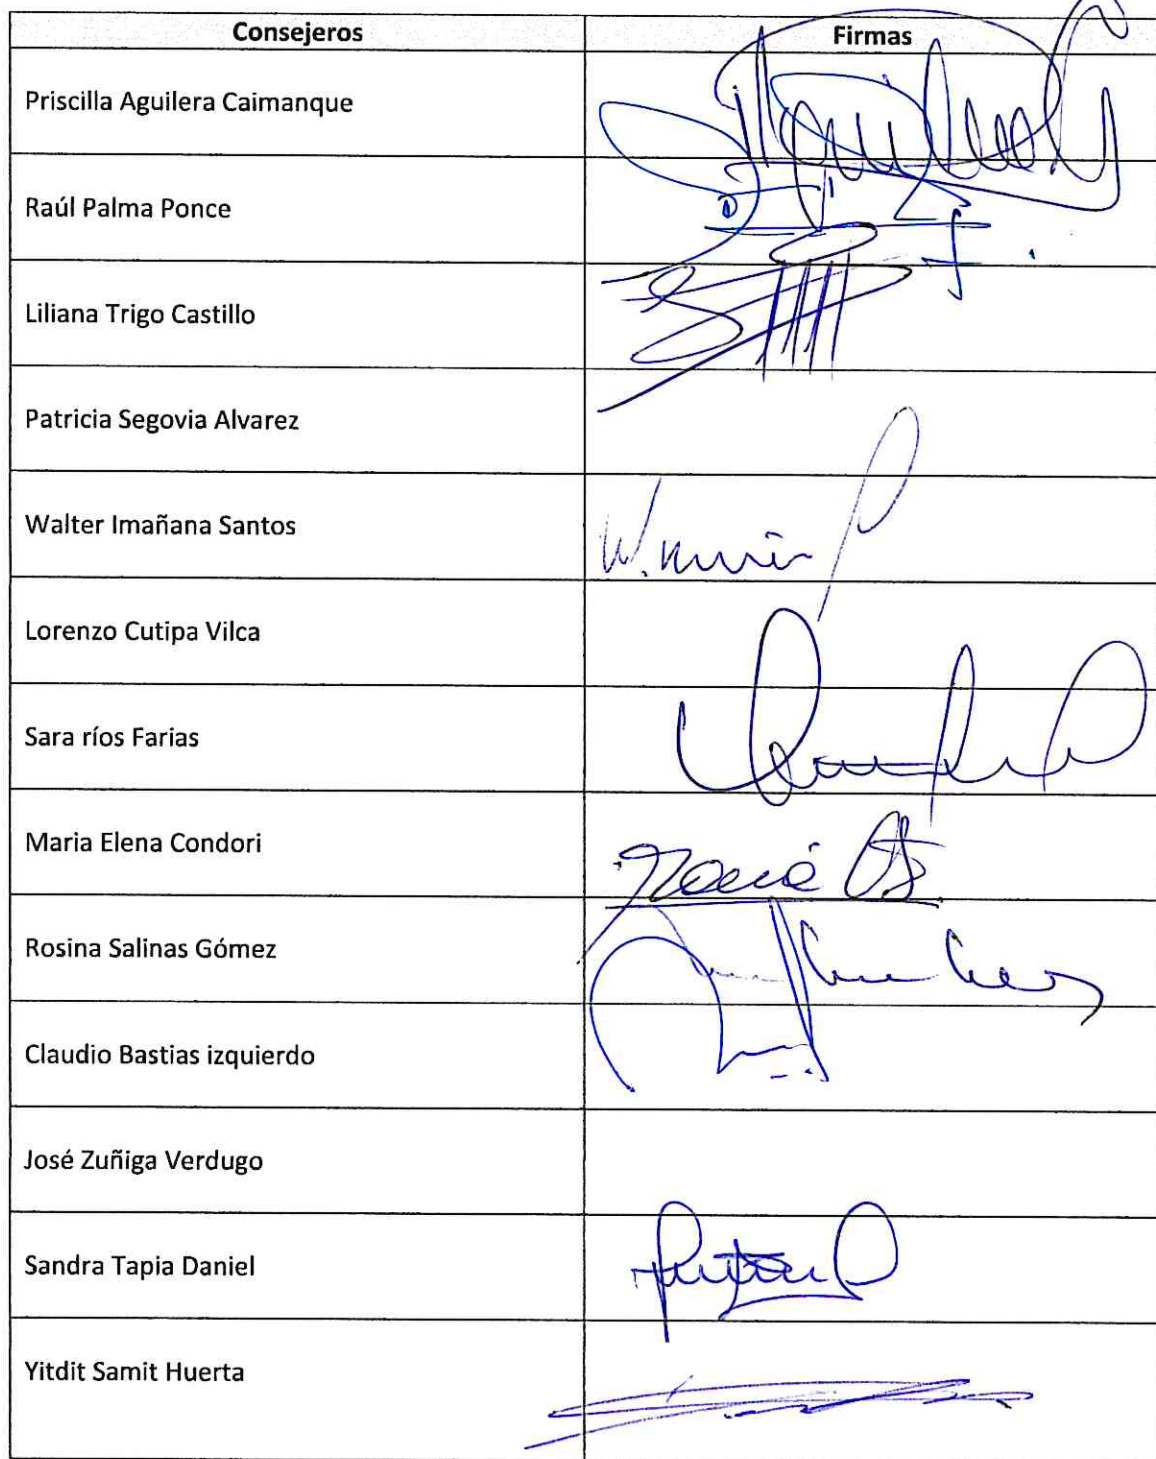 Consejeros Firmas
Priscilla Aguilera Caimanque
Raúl Palma Ponce
Liliana Trigo Castillo
Patricia Segovia Alvarez
Walter Imañana Santos
Lorenzo Cutipa Vilca
Sara ríos Farias
Maria Elena Condori
Rosina Salinas Gómez
Claudio Bastias izquierdo
José Zuñiga Verdugo
Sandra Tapia Daniel
Yitdit Samit Huerta